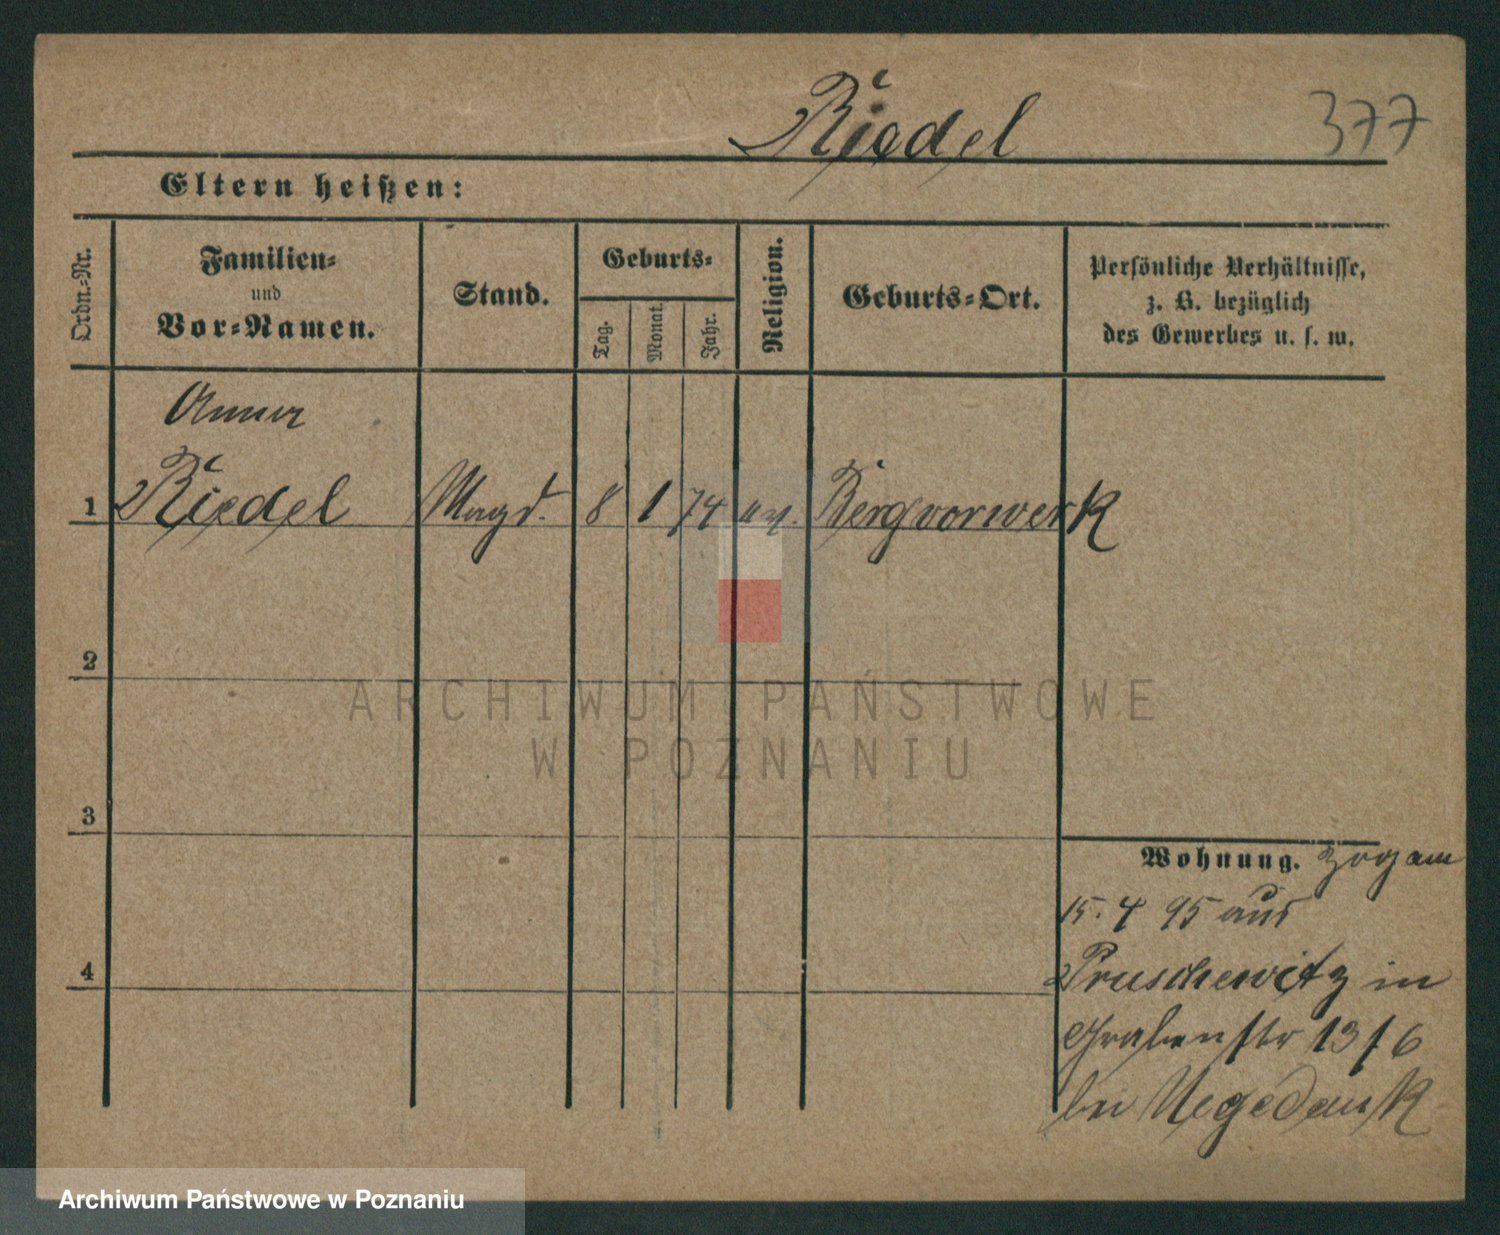 Riedel
377
Eltern heißen:
Ordn.-Nr.
Familien-
und
Vor-Namen.
Stand.
Geburts-
Tag.
Monat.
Jahr.
Religion.
Geburts-Ort.
Persönliche Verhältnisse,
z. B. bezüglich
des Gewerbes u. s. w.
Anna
1 Riedel Magd. 8 1 74 ev. Bergvorwerk
2
3
4
Wohnung. zog am
15. 4 95 aus
Pruschewitz in
Grabenstr 13/6
bei Negedank
ARCHIWUM PAŃSTWOWE
W POZNANIU
Archiwum Państwowe w Poznaniu